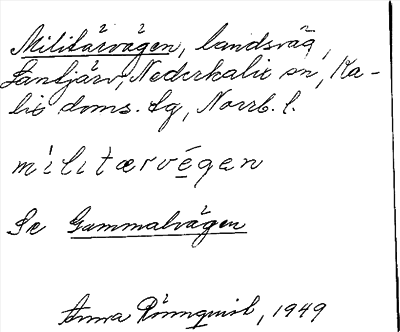 Militärvägen, landsväg,
Säntjärv, Nederkalix sn, Ka-
lix doms. lg, Norrb. l.
militærvégen
Se Gammalvägen
Anna Rönnqvist, 1949